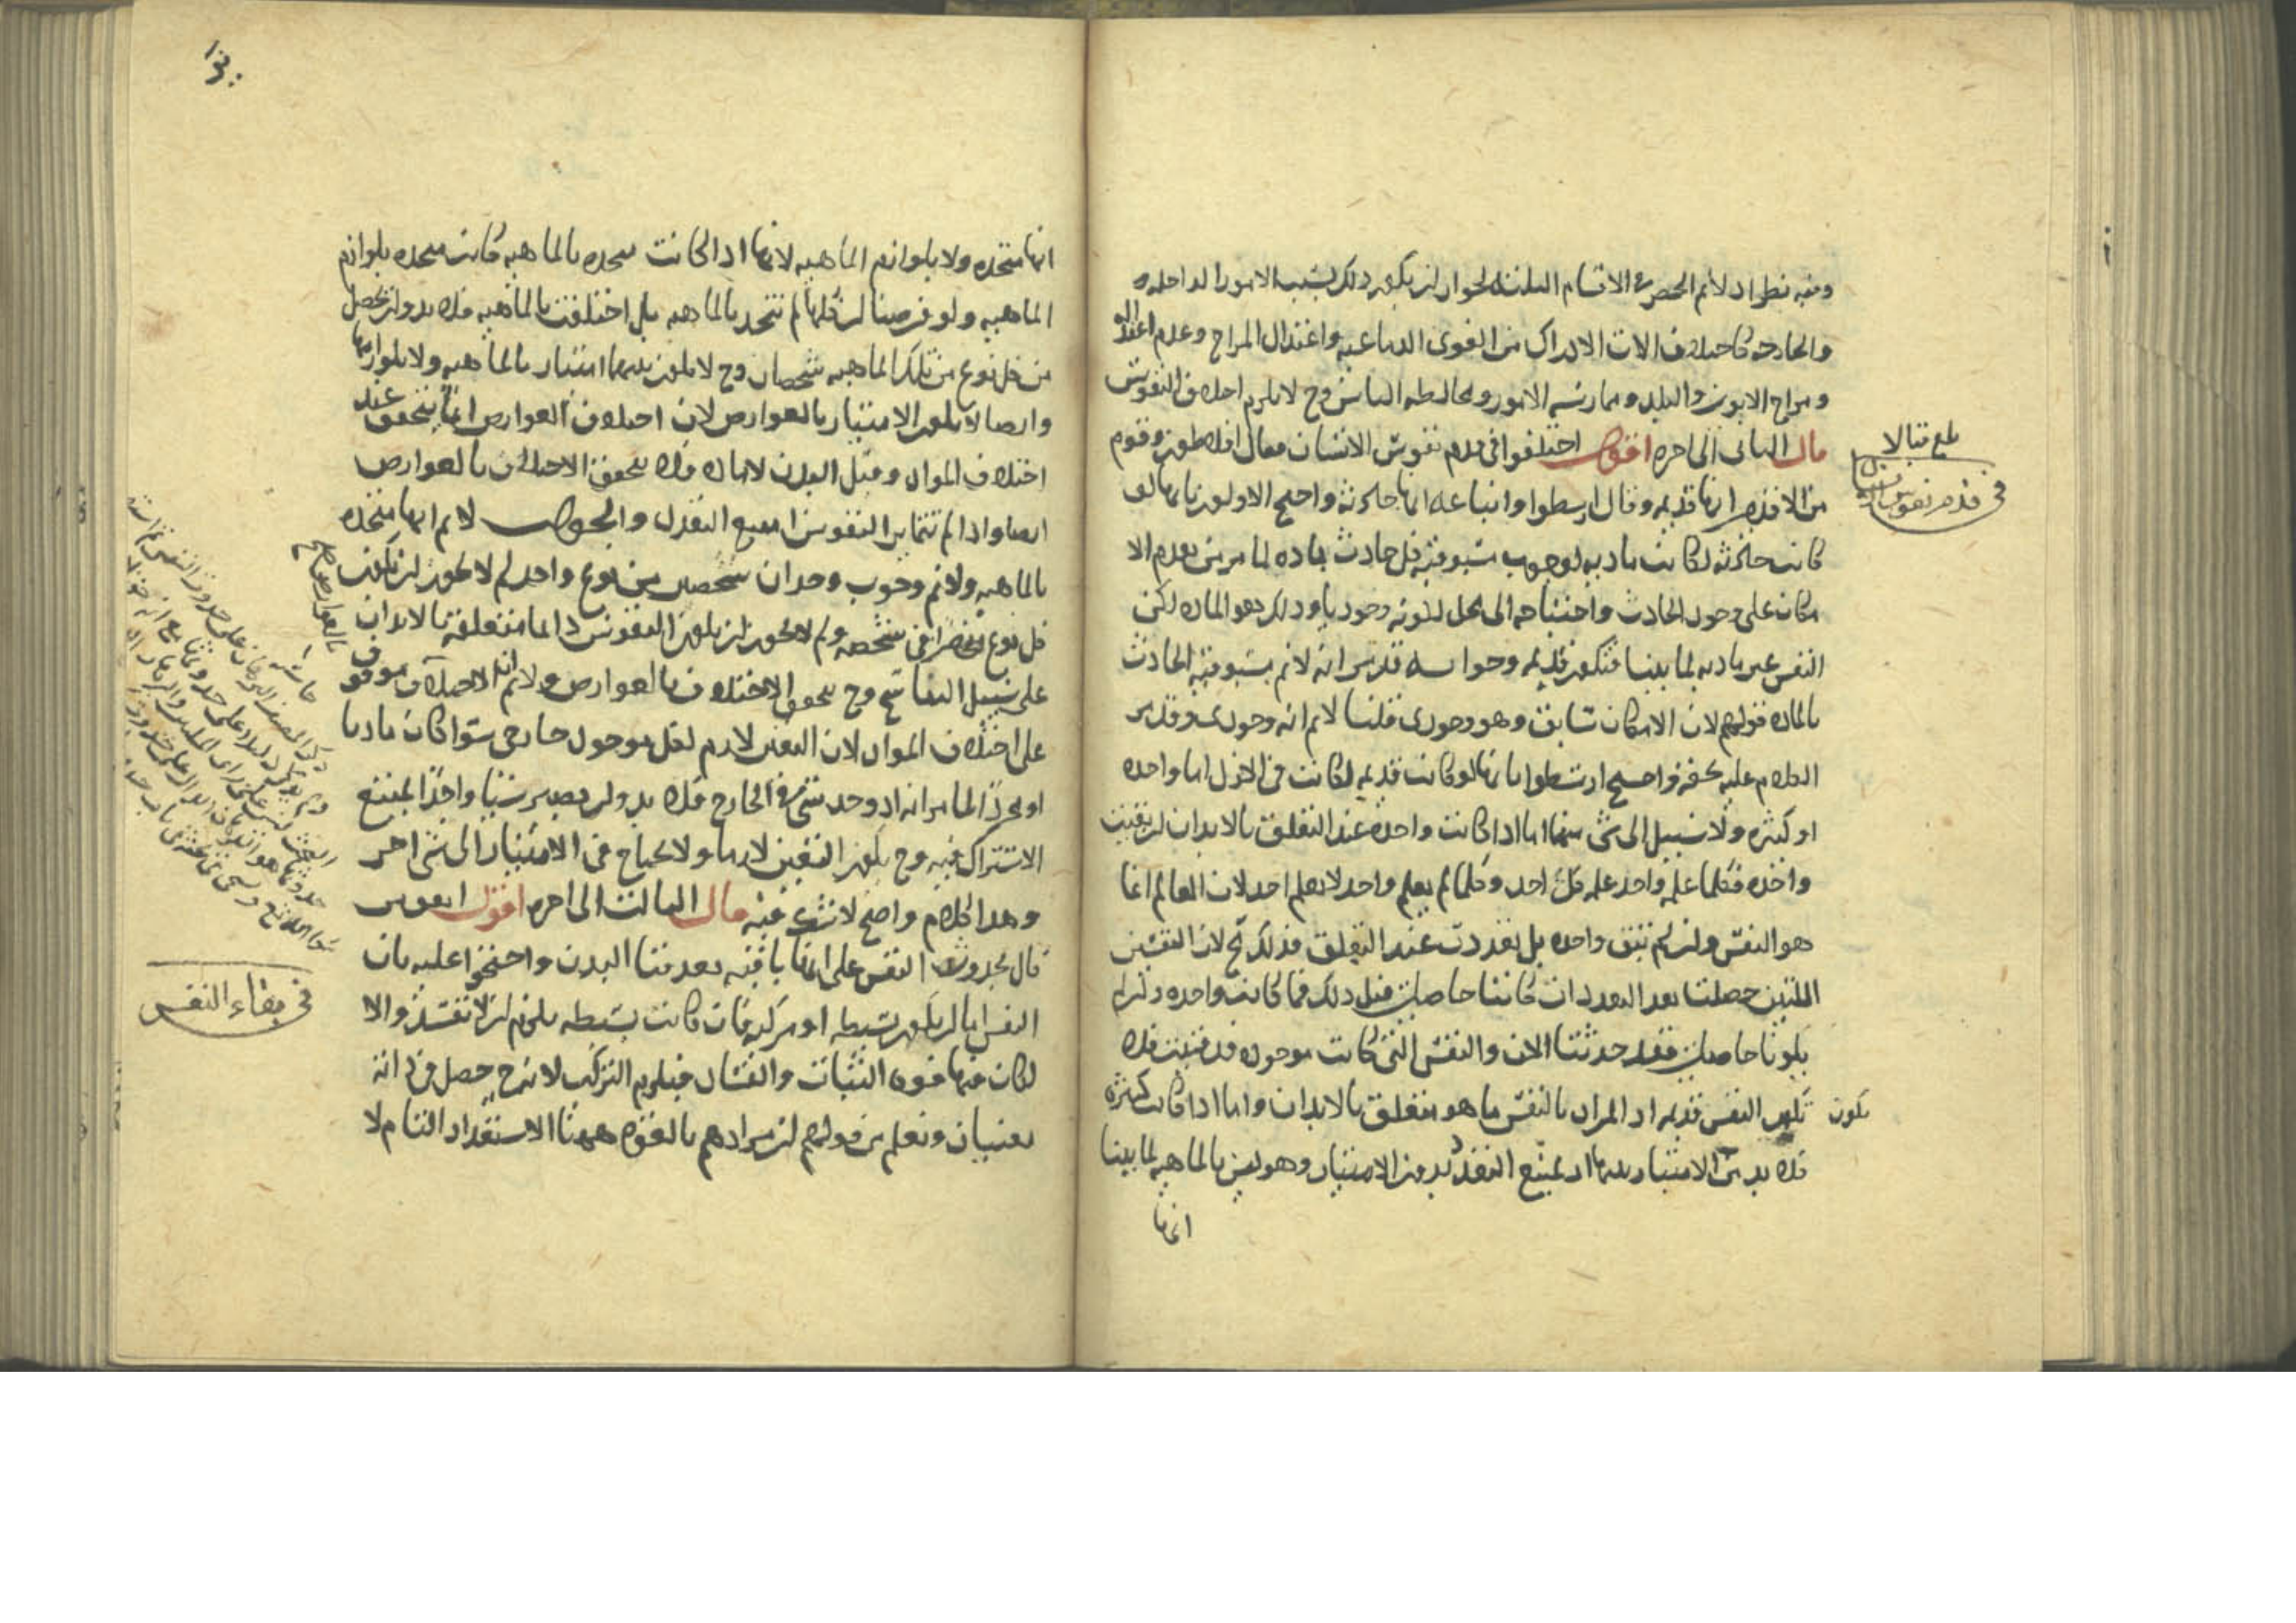 وفيه نظر اذ لانم الحصر في الاقسام الثلثة لجواز ان يكون ذلك بسبب الامور الداخله
والخارجه كاختلاف الات الادراك من القوى الدماعيه واعتدال المزاج وعدم اعتداله
ومزاج الابوين والبلد وممارسه الامور ومخالطه الناس وح لا يلزم اختلاف النفوس
قال الثانى الى اخره اقول اختلفوا فى قدم نفوس الانسان فقال افلاطون وقوم
من الاقدمين انها قديمه وقال ارسطوا واتباعه انها حادثه واحتج الاولون بانها لو
كانت حادثه لكانت ماديه لوجوب مسبوقيه كل حادث بماده لما مر من تقدم الا
مكان على وجود الحادث واحتياجه الى محل لكونه وجوديا وذلك هو الماده لكن
النفس غير ماديه لما بينا فتكون قديمه وجوابه قد مر انه لانم مسبوقيه الحادث
بالماده قولهم لان الامكان سابق وهو وجودى قلنا لانم انه وجودى وقد مر
الكلام عليه كفة واحتج ارسطوا بانها لو كانت قديمه لكانت فى الازل اما واحده
او كثيره ولا سبيل الى شى منهما اما اذا كانت واحده عند التعلق بالابدان ان بقيت
واحده فكلما علمه واحد علمه كل احد وكلما لم يعلم واحد لا يعلم احد لان العالم انما
هو النفس وان لم تبق واحده بل تعددت عند التعلق فذلك مح لان النفسين
اللتين حصلتا بعد التعدد ان كانتا حاصلتين قبل ذلك فما كانت واحده وان لم
يكونا حاصلتين فقد حدثتا الان والنفس التى كانت موجوده قد فنيت فلا
تكون النفس قديمه اذ المراد بالنفس ما هو متعلق بالابدان واما اذا كانت كثيره
فلا بد من الامتياز بينها اذ يمتنع التعدد بدون الامتياز وهو ليس بالماهيه لما بينا
انها
بلغ قبالا
فى قدم نفوس الانسان
تكون
انها متحده ولا بلوازم الماهيه لانها اذا كانت متحده بالماهيه كانت متحده بلوازم
الماهيه ولو فرضنا ان كلها لم تتحد بالماهيه بل اختلفت بالماهيه فلا بد وان يحصل
من كل نوع من تلك الماهيه شخصان وح لا يكون بينهما امتياز بالماهيه ولا بلوازمها
وايضا لا يكون الامتياز بالعوارض لان اختلاف العوارض انما يتحقق عند
اختلاف المواد وقبل البدن لا ماده فلا يتحقق الاختلاف بالعوارض
ايضا واذا لم تتمايز النفوس امتنع التعدد والجواب لانم انها متحده
بالماهيه ولانم وجوب وجدان شخصين من نوع واحد لم لا يجوز ان يكون
كل نوع منحصرا فى شخصه ولم لا يجوز ان يكون النفوس دائما متعلقه بالابدان
على سبيل التناسخ وح يتحقق الاختلاف بالعوارض ولانم ان الاختلاف موقوف
على اختلاف المواد لان التعين لازم لكل موجود خارجى سوا كان ماديا
او مجردا لما مر انه اذ وجد شى فى الخارج فلا بد وان يصير شيا واحدا يمتنع
الاشتراك فيه وح يكون التعين لازما ولا يحتاج فى الامتياز الى شى اخر
وهذا كلام واضح لا شك فيه قال الثالث الى اخره اقول اتفق من
قال بحدوث النفس على انها باقيه بعد فنا البدن واحتجوا عليه بان
النفس اما ان يكون بسيطه او مركبه فان كانت بسيطه يلزم ان لا تفسد والا
لكان فيها قوه الثبات والفساد فيلزم التركيب لانه ح حصل فى ذاته
معنيان ونعلم من قولهم ان مرادهم بالقوه ههنا الاستعداد التام لا
بالعوارض صح
حاشيه
فى بقاء النفس